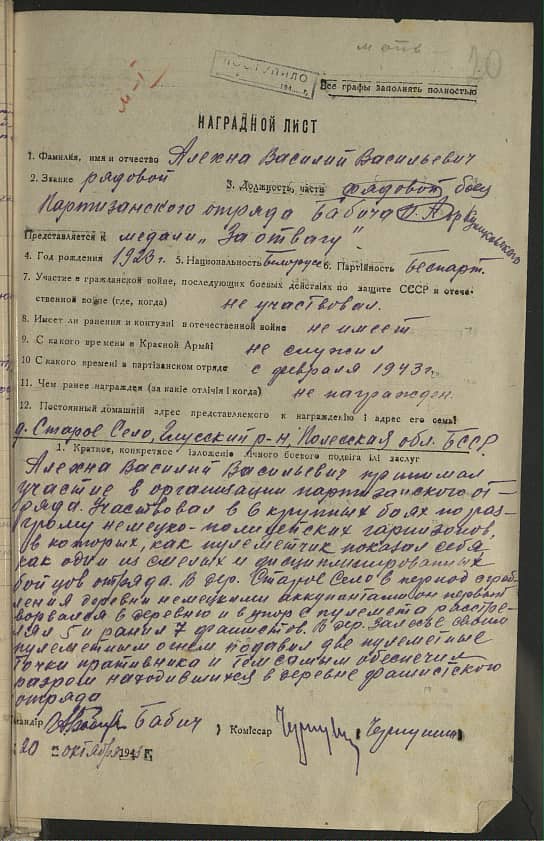 20
ПОСТУПИЛО
Все графы заполнять полностью
НАГРАДНОЙ ЛИСТ
1. Фамилия, имя и отчество Алехна Василий Васильевич
2. Звание рядовой 3. Должность, часть рядовой боец
Партизанского отряда Бабича
Представляется к медали „За отвагу".
4. Год рождения 1923 г. 5. Национальность белорус 6. Партийность Беспарт.
7. Участие в гражданской войне, последующих боевых действиях по защите СССР и отече-
ественной войне (где, когда) не участвовал.
8. Имеет ли ранения и контузии в отечественной войне не имеет
9. С какого времены в Красной Арміі не служил
10 С какого времені в партізанском отряде с февраля 1943 г.
11. Чем ранее награжден (за какіе отлічія і когда) не награжден.
12. Постоянный домашній адрес представляемого к награжденію і адрес его семьі
д. Старое Село, Глусский р-н, Полесская обл. БССР.
1. Краткое, конкретное ізложеніе лічного боевого подвіга ілі заслуг
Алехна Василий Васильевич принимал
участие в организации партизанского от-
ряда. Участвовал в 6 крупных боях по раз-
грому немецко-полицейских гарнизонов,
в которых, как пулеметчик показал себя
как один из смелых и дисциплинированных
бойцов отряда. В дер. Старое Село в период
ления деревни немецкими аккупантами он первый
ворвался в деревню и в упор с пулемета расстре-
лял 5 и ранил 7 фашистов. В дер. Залесье своим
пулеметным огнем подавил две пулеметные
точки противника и тем самым обеспечил
разгром находившихся в деревне фашистского
отряда
Бабич Коміссар
20 октября 194